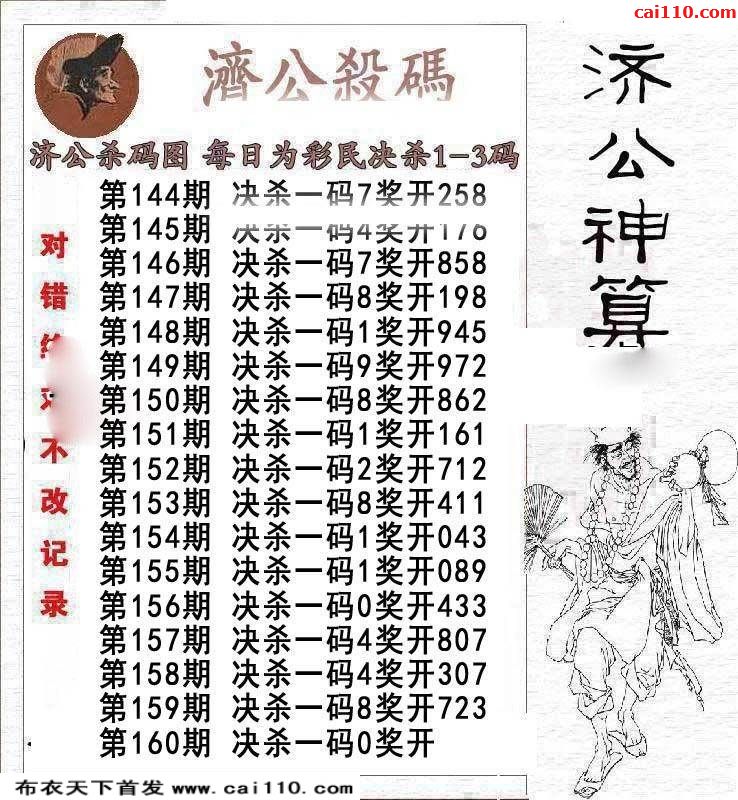 cai110.com
濟公殺碼
济公杀码图 每日为彩民决杀1-3码
第144期 决杀一码7奖开258
第145期 决杀一码4奖开176
第146期 决杀一码7奖开858
第147期 决杀一码8奖开198
第148期 决杀一码1奖开945
第149期 决杀一码9奖开972
第150期 决杀一码8奖开862
第151期 决杀一码1奖开161
第152期 决杀一码2奖开712
第153期 决杀一码8奖开411
第154期 决杀一码1奖开043
第155期 决杀一码1奖开089
第156期 决杀一码0奖开433
第157期 决杀一码4奖开807
第158期 决杀一码4奖开307
第159期 决杀一码8奖开723
第160期 决杀一码0奖开
对错不改记录
济公神算
布衣天下首发 www.cai110.com